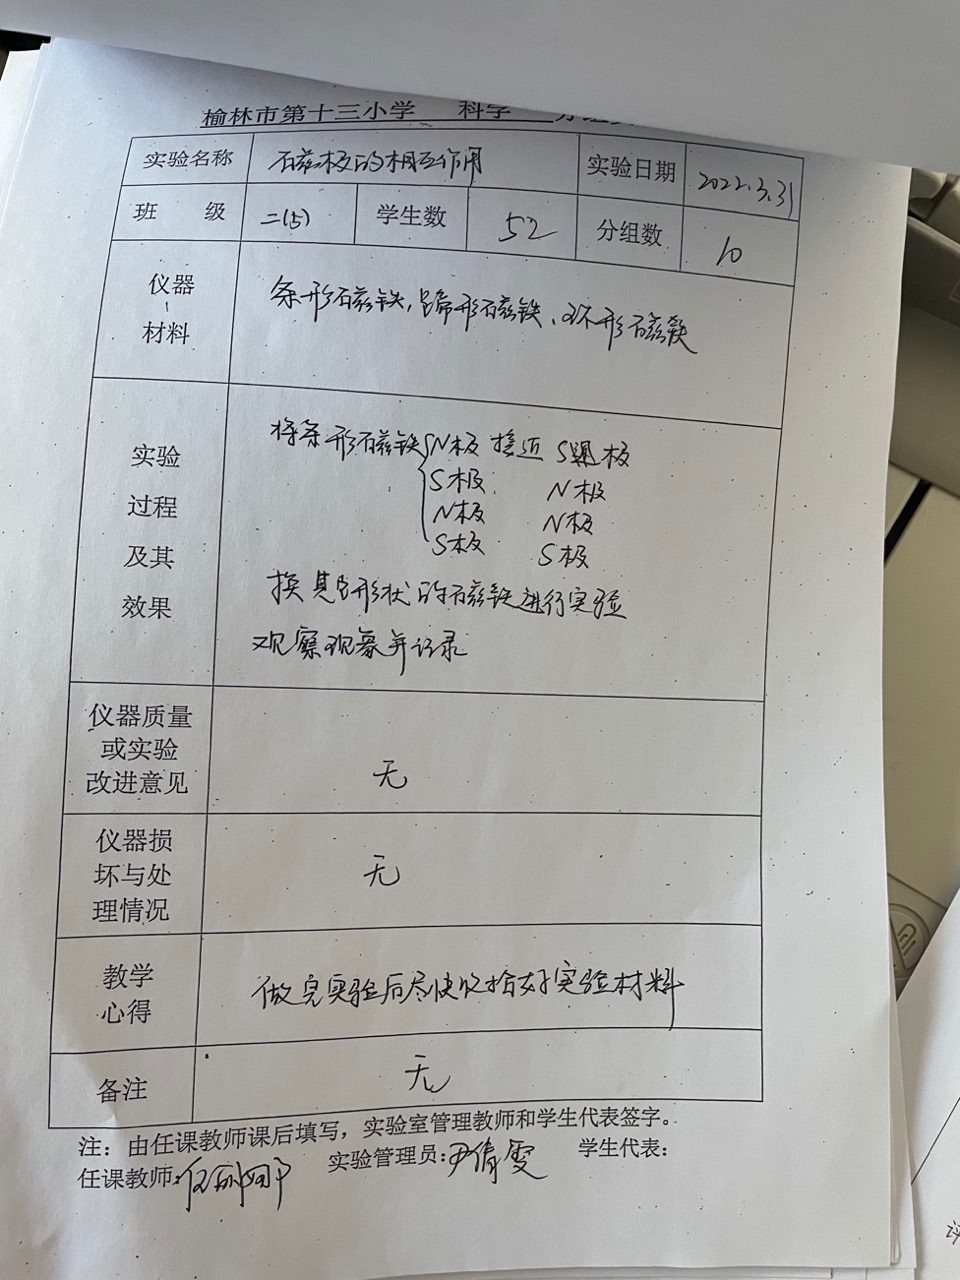 榆林市第十三小学 科学
实验名称 磁极的相互作用 实验日期 2022.3.31
班 级 二(5) 学生数 52 分组数 10
仪器
材料
条形磁铁,蹄形磁铁、环形磁铁
实验
过程
及其
效果
将条形磁铁 N极 接近 S极
S极 N极
N极 N极
S极 S极
换其它形状的磁铁进行实验
观察现象并记录
仪器质量
或实验
改进意见
无
仪器损
坏与处
理情况
无
教学
心得
做完实验后尽快收拾好实验材料
备注 无
注:由任课教师课后填写,实验室管理教师和学生代表签字。
任课教师: 实验管理员:尹倩雯 学生代表: